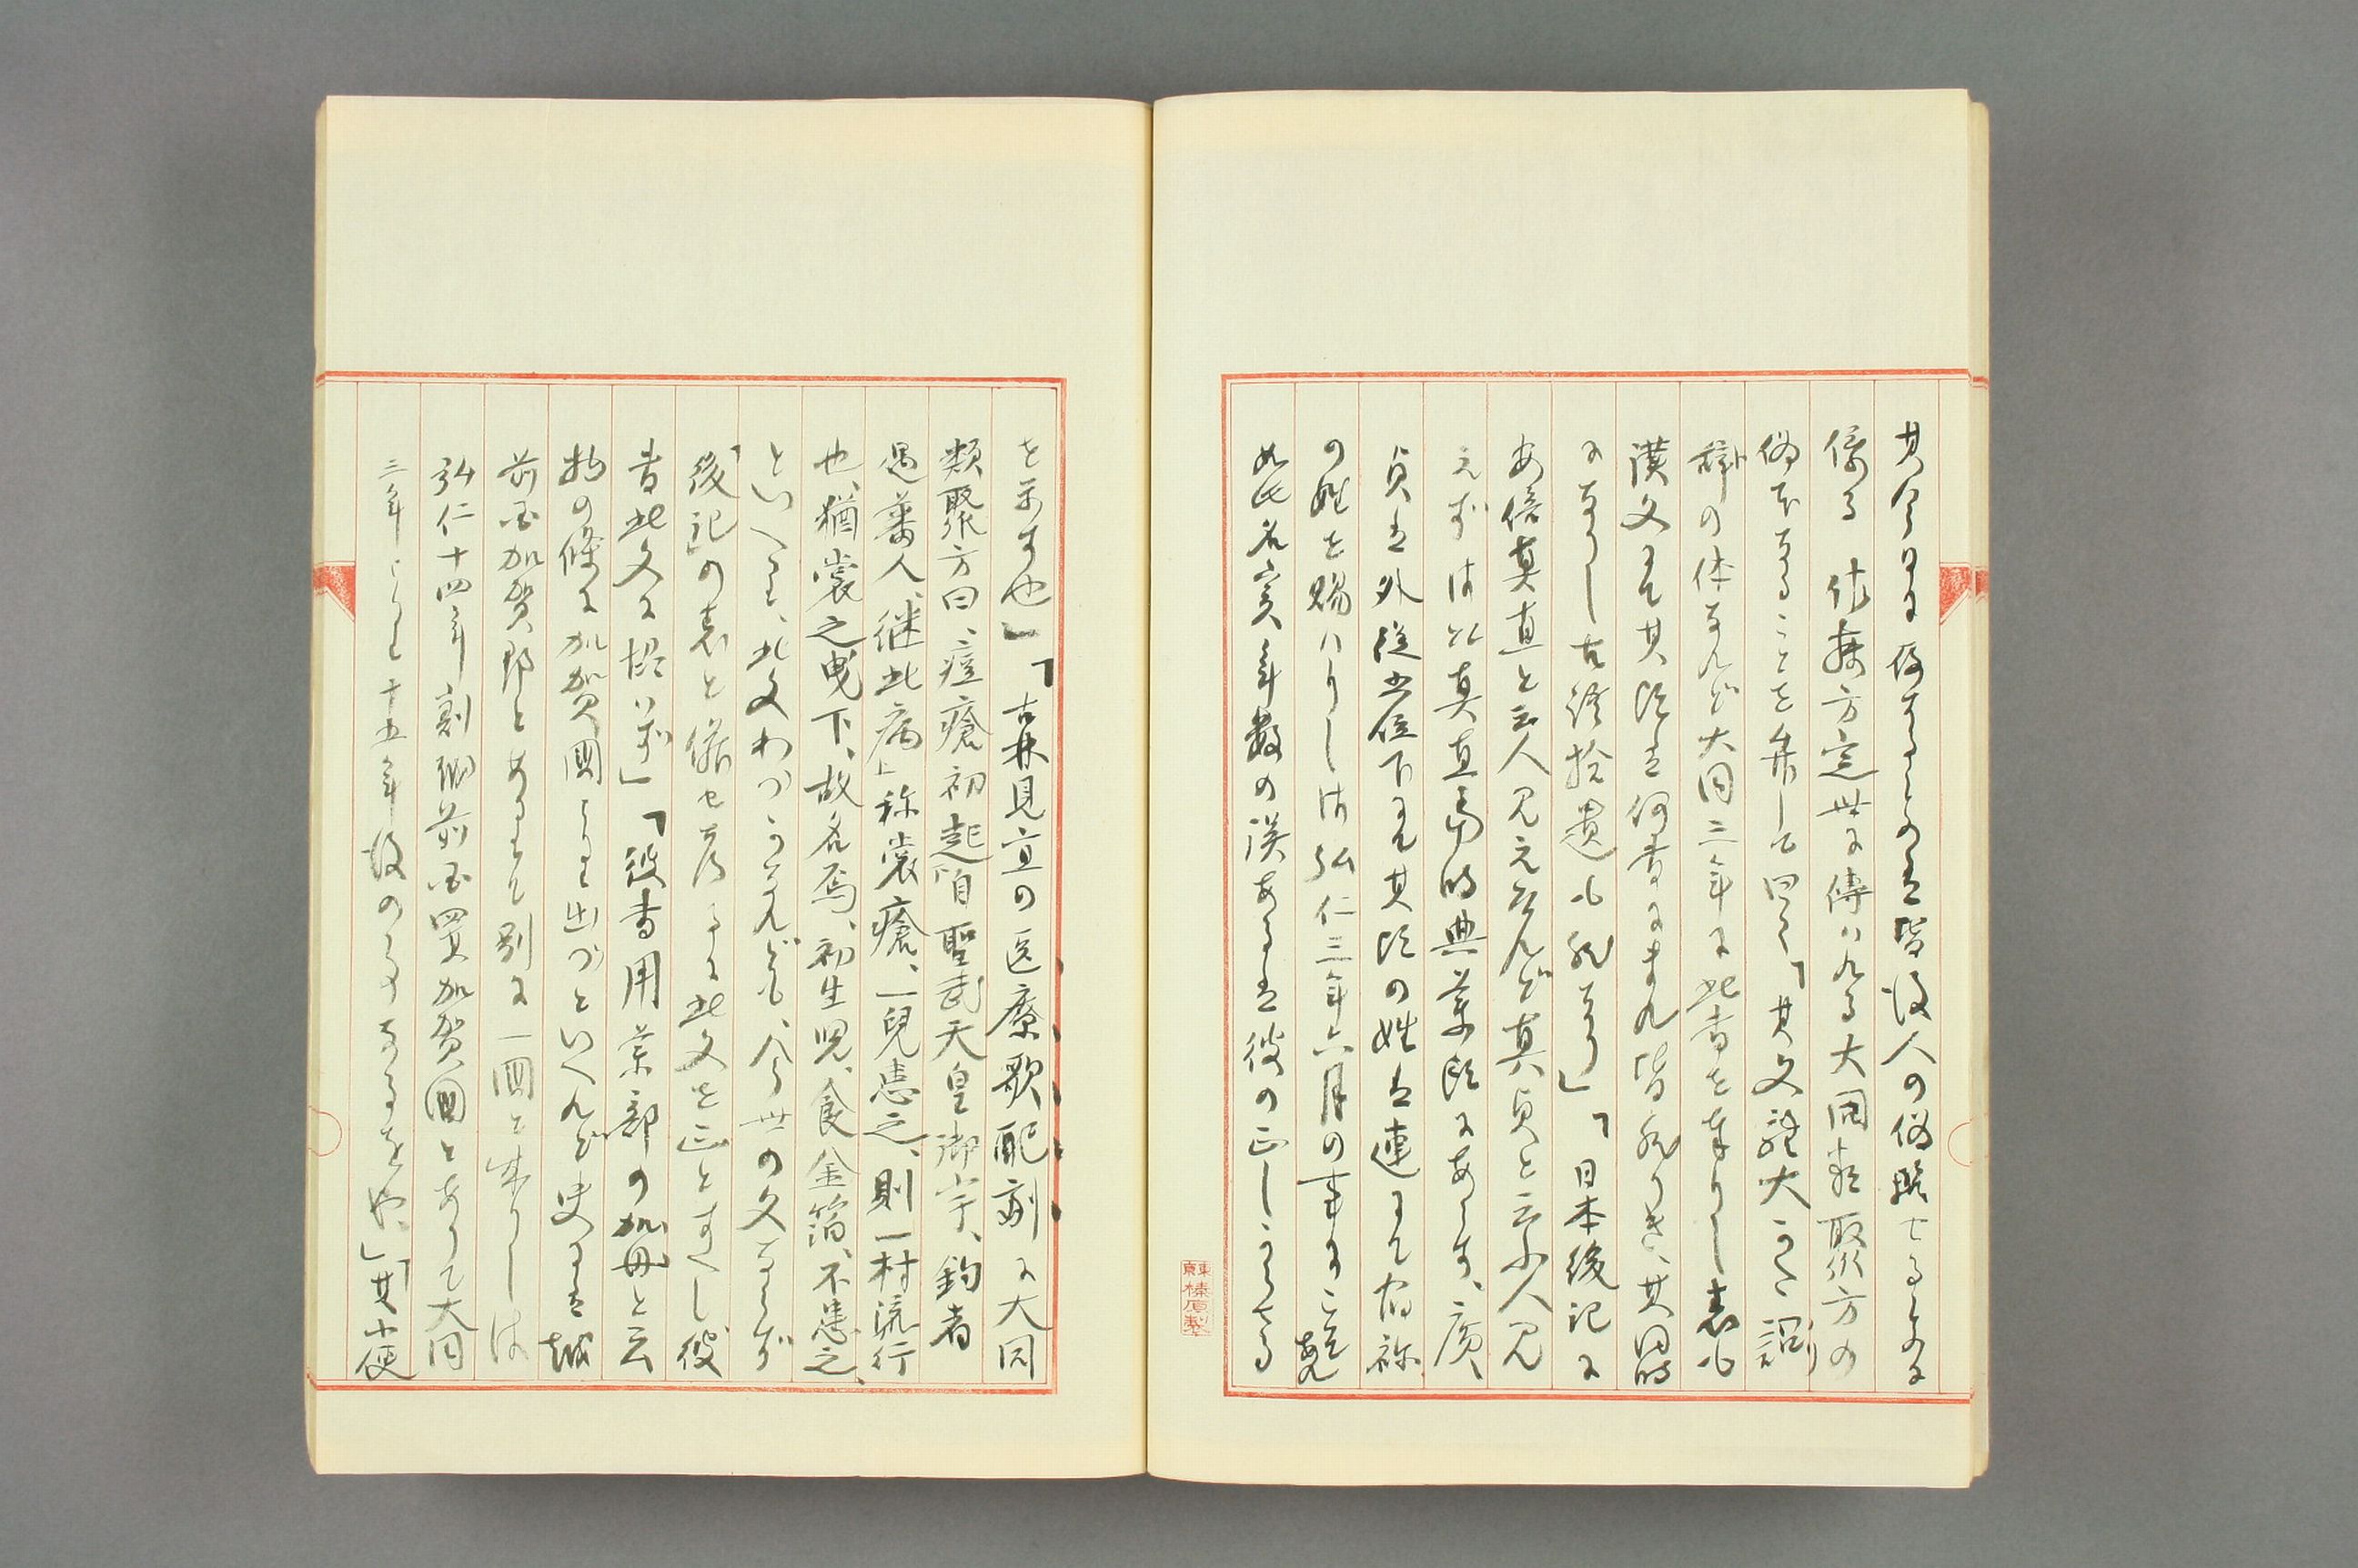 其今日に存するもの是皆後人の偽撰せるものに
係る 佐藤方定世に傳はれる大同類聚方の
偽本なることを弁して曰く「其文體大かた詔り
辭の体なれど大同三年に此書を奉りし表も
漢文にて其頃は何書にまれ皆然りき、其同時
になりし古語拾遺も然なり」「日本後記に
安倍真直と云人見えたれど真貞と云ふ人見
えず は此真直当時典薬頭にあらす、廣
貞は外従五位下にて其頃の姓は連にて宿祢
の姓を賜はりしは弘仁三年六月の事なこそあれ
如此名実年数の誤あるは彼の正しからさる
を示す也」「古林見宜の医療歌配剤に大同
類聚方曰、痘瘡初起自聖武天皇御宇、釣者
遇蕃人、継此病、称裳瘡、一兒患之、則一村流行
也、猶裳之曳下、故名焉、初生児、食金箔、不患之、
といへり、此文わづかなれども、今世の文ならず
「後記」の表と偕せ考ふるに此文を正とすへし彼
書此文に協はず」「彼書用薬部の加毋と云
物の條に加賀國より出づといへれど史には越
前国加賀郡とありて別に一國と成りしは
弘仁十四年割越前国置加賀國とありて大同
三年より十五年後の事なるをや、」「其小便
東京榛原製